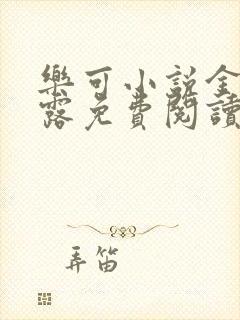 樂可小說金
露免費閱讀
弄笛